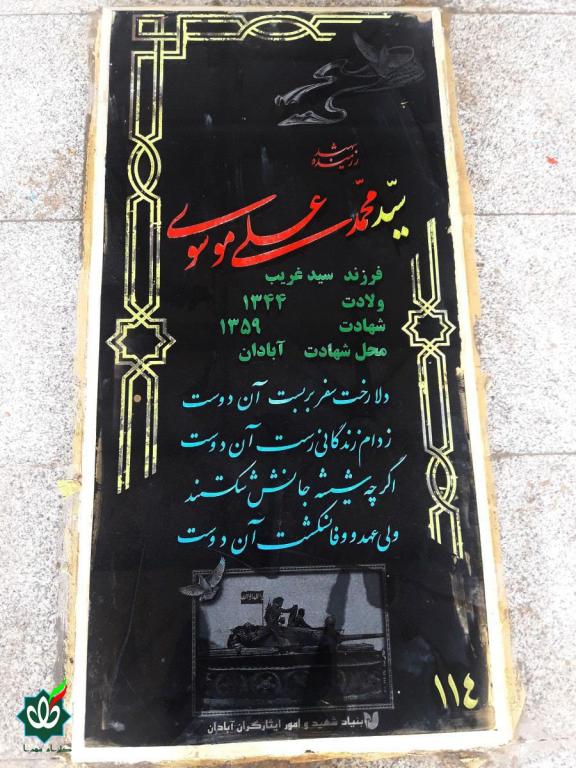 شهید
رزمنده
سیّد محمّد علی موسوی
فرزند سید غریب
ولادت ۱۳۴۴
شهادت ۱۳۵۹
محل شهادت آبادان
دلا رخت سفر بربست آن دوست
ز دام زندگانی رست آن دوست
اگر چه شیشه جانش شکستند
ولی عهد و وفا نشکست آن دوست
بنیاد شهید و امور ایثارگران آبادان
۱۱۴
گلزار شهدا